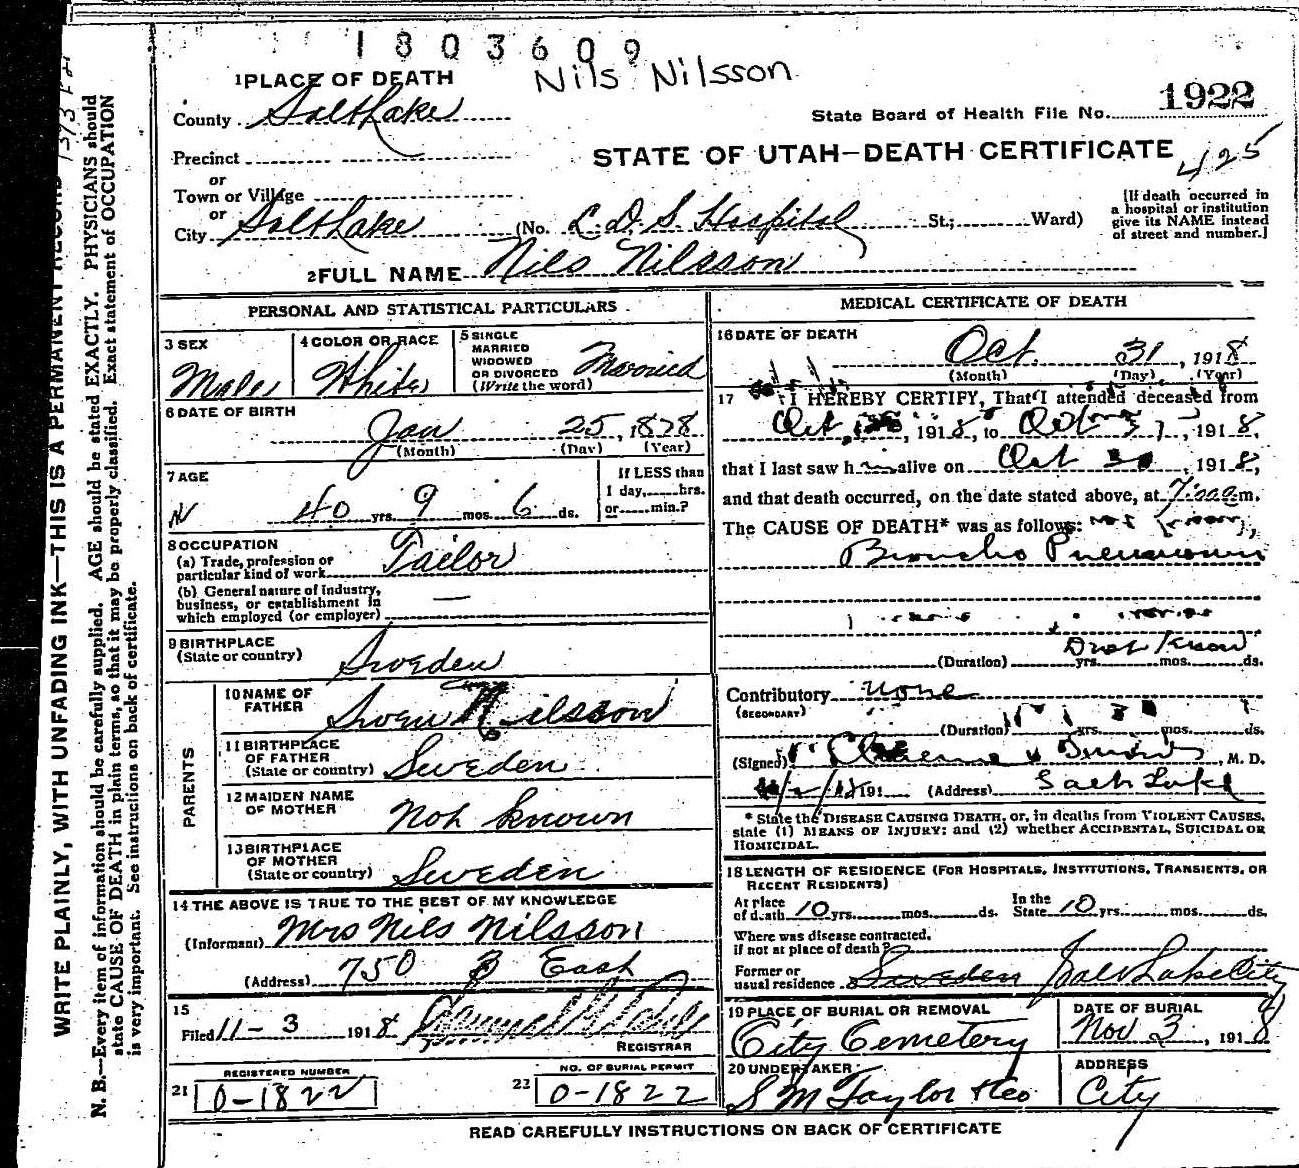 1803609
Nils Nilsson
1 PLACE OF DEATH
County Salt Lake
State Board of Health File No. 1922
Precinct
STATE OF UTAH—DEATH CERTIFICATE
425
or
Town or Village
or
City Salt Lake (No. L. D. S. Hospital St.; Ward)
[If death occurred in
a hospital or institution
give its NAME instead
of street and number.]
2 FULL NAME Nils Nilsson
PERSONAL AND STATISTICAL PARTICULARS
3 SEX
Male
4 COLOR OR RACE
White
5 SINGLE
MARRIED
WIDOWED
OR DIVORCED
(Write the word)
Married
6 DATE OF BIRTH
Jan 25, 1878
(Month) (Day) (Year)
7 AGE
40 yrs. 9 mos. 6 ds.
If LESS than
1 day, hrs.
or min.?
8 OCCUPATION
(a) Trade, profession or
particular kind of work Tailor
(b) General nature of industry,
business, or establishment in
which employed (or employer) —
9 BIRTHPLACE
(State or country) Sweden
PARENTS
10 NAME OF
FATHER Sven Nilsson
11 BIRTHPLACE
OF FATHER
(State or country) Sweden
12 MAIDEN NAME
OF MOTHER Not known
13 BIRTHPLACE
OF MOTHER
(State or country) Sweden
14 THE ABOVE IS TRUE TO THE BEST OF MY KNOWLEDGE
(Informant) Mrs Nils Nilsson
(Address) 750 3 East
15
Filed 11-3 1918
REGISTRAR
REGISTERED NUMBER
21 0-1822
NO. OF BURIAL PERMIT
22 0-1822
MEDICAL CERTIFICATE OF DEATH
16 DATE OF DEATH
Oct. 31, 1918
(Month) (Day) (Year)
17 I HEREBY CERTIFY, That I attended deceased from
Oct, 1918, to Oct 31, 1918,
that I last saw him alive on Oct 30, 1918,
and that death occurred, on the date stated above, at 7:00 a m.
The CAUSE OF DEATH* was as follows:
Broncho Pneumonia
Don't Know
(Duration) yrs. mos. ds.
Contributory none
(SECONDARY)
(Duration) yrs. mos. ds.
(Signed) M. D.
191 (Address) Salt Lake
* State the DISEASE CAUSING DEATH, or, in deaths from VIOLENT CAUSES,
state (1) MEANS OF INJURY; and (2) whether ACCIDENTAL, SUICIDAL OR
HOMICIDAL.
18 LENGTH OF RESIDENCE (FOR HOSPITALS, INSTITUTIONS, TRANSIENTS, OR
RECENT RESIDENTS)
At place
of death 10 yrs. mos. ds.
In the
State 10 yrs. mos. ds.
Where was disease contracted,
if not at place of death?
Former or
usual residence Sweden Salt Lake City
19 PLACE OF BURIAL OR REMOVAL
City Cemetery
DATE OF BURIAL
Nov 3, 1918
20 UNDERTAKER
S M Taylor & Co
ADDRESS
City
READ CAREFULLY INSTRUCTIONS ON BACK OF CERTIFICATE
WRITE PLAINLY, WITH UNFADING INK—THIS IS A PERMANENT RECORD
N. B.—Every item of information should be carefully supplied. AGE should be stated EXACTLY. PHYSICIANS should
state CAUSE OF DEATH in plain terms, so that it may be properly classified. Exact statement of OCCUPATION
is very important. See instructions on back of certificate.